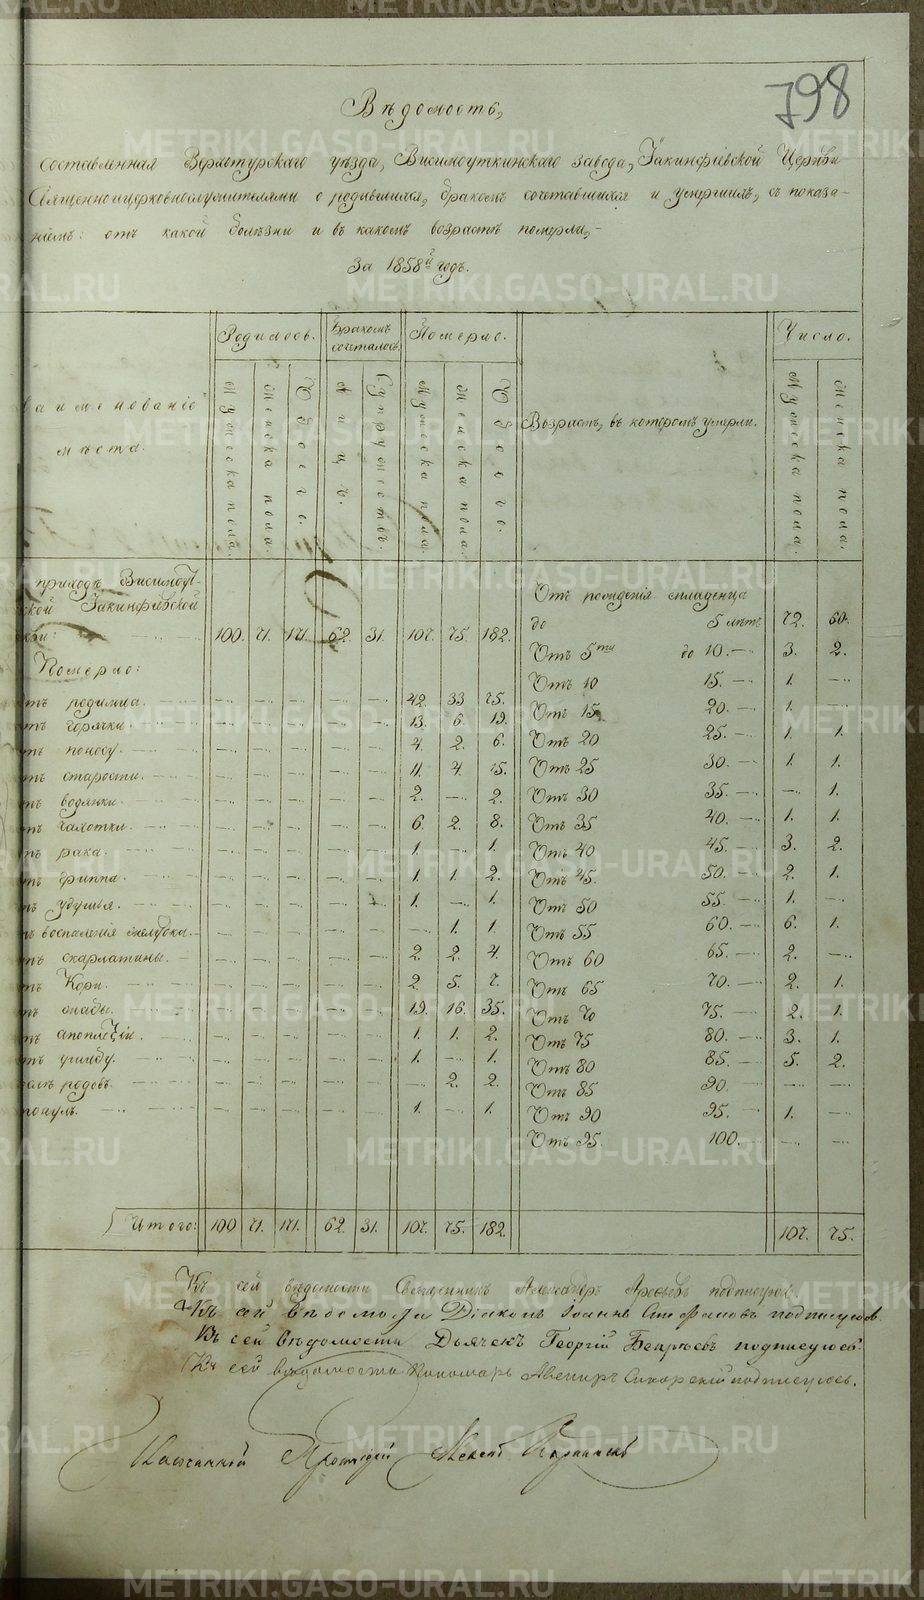 798
Вѣдомость,
составленная Верхотурскаго уѣзда, Висимоуткинскаго завода, Іакинфіевской Церкви
Священноцерковнослужителями о родившихся, бракомъ сочетавшихся и умершихъ, съ показа-
ніемъ: отъ какой болѣзни и въ какомъ возрастѣ померли,-
За 1858й годъ.
аименованіе мѣста. Родилось. Бракомъ сочеталось. Померло. Возрастъ, въ которомъ умерли. Число.
Мужеска пола. Женска пола. Обоего. Лицъ. Супружествъ. Мужеска пола. Женска пола. Обоего. Мужеска пола. Женска пола.
приходѣ Висимоут-
ской Іакинфіевской Отъ рожденія младенца
кви: 100. 71. 171. 62. 31. 107. 75. 182. до 5 лѣтъ 72. 60.
Померло: Отъ 5ти до 10.— 3. 2.
тъ родимца. — — — — — 42. 33. 75. Отъ 10 15.— 1. —
тъ горячки — — — — — 13. 6. 19. Отъ 15 20.— 1. —
тъ поносу. — — — — — 4. 2. 6. Отъ 20 25.— 1. 1.
тъ старости. — — — — — 11. 4. 15. Отъ 25 30.— 1. 1.
тъ водянки. — — — — — 2. — 2. Отъ 30 35.— — 1.
тъ чахотки. — — — — — 6. 2. 8. Отъ 35 40.— 1. 1.
тъ рака. — — — — — 1. — 1. Отъ 40 45.— 3. 2.
тъ — — — — — 1. 1. 2. Отъ 45. 50.— 2. 1.
тъ удушья. — — — — — 1. — 1. Отъ 50 55.— 1. —
ъ воспаленія желудка. — — — — — — 1. 1. Отъ 55 60.— 6. 1.
тъ скарлатины. — — — — — 2. 2. 4. Отъ 60 65.— 2. —
тъ Кори. — — — — — 2. 5. 7. Отъ 65 70.— 2. 1.
тъ — — — — — 19. 16. 35. Отъ 70 75.— 2. 1.
тъ апоплексіи. — — — — — 1. 1. 2. Отъ 75 80.— 3. 1.
тъ — — — — — 1. — 1. Отъ 80 85.— 5. 2.
родовъ — — — — — — 2. 2. Отъ 85 90.— — —
тонулъ. — — — — — 1. — 1. Отъ 90 95.— 1. —
Отъ 95. 100. — —
Итого: 100 71. 171. 62. 31. 107. 75. 182. 107. 75.
Къ сей вѣдомости Священникъ Александръ подписуюсь.
Къ сей вѣдомости Діаконъ Іоаннъ Стефановъ подписуюсь
Къ сей вѣдомости Дьячекъ Георгій подписуюсь.
Къ сей вѣдомости Пономарь Авениръ Сикорскій подписуюсь.
METRIKI.GASO-URAL.RU